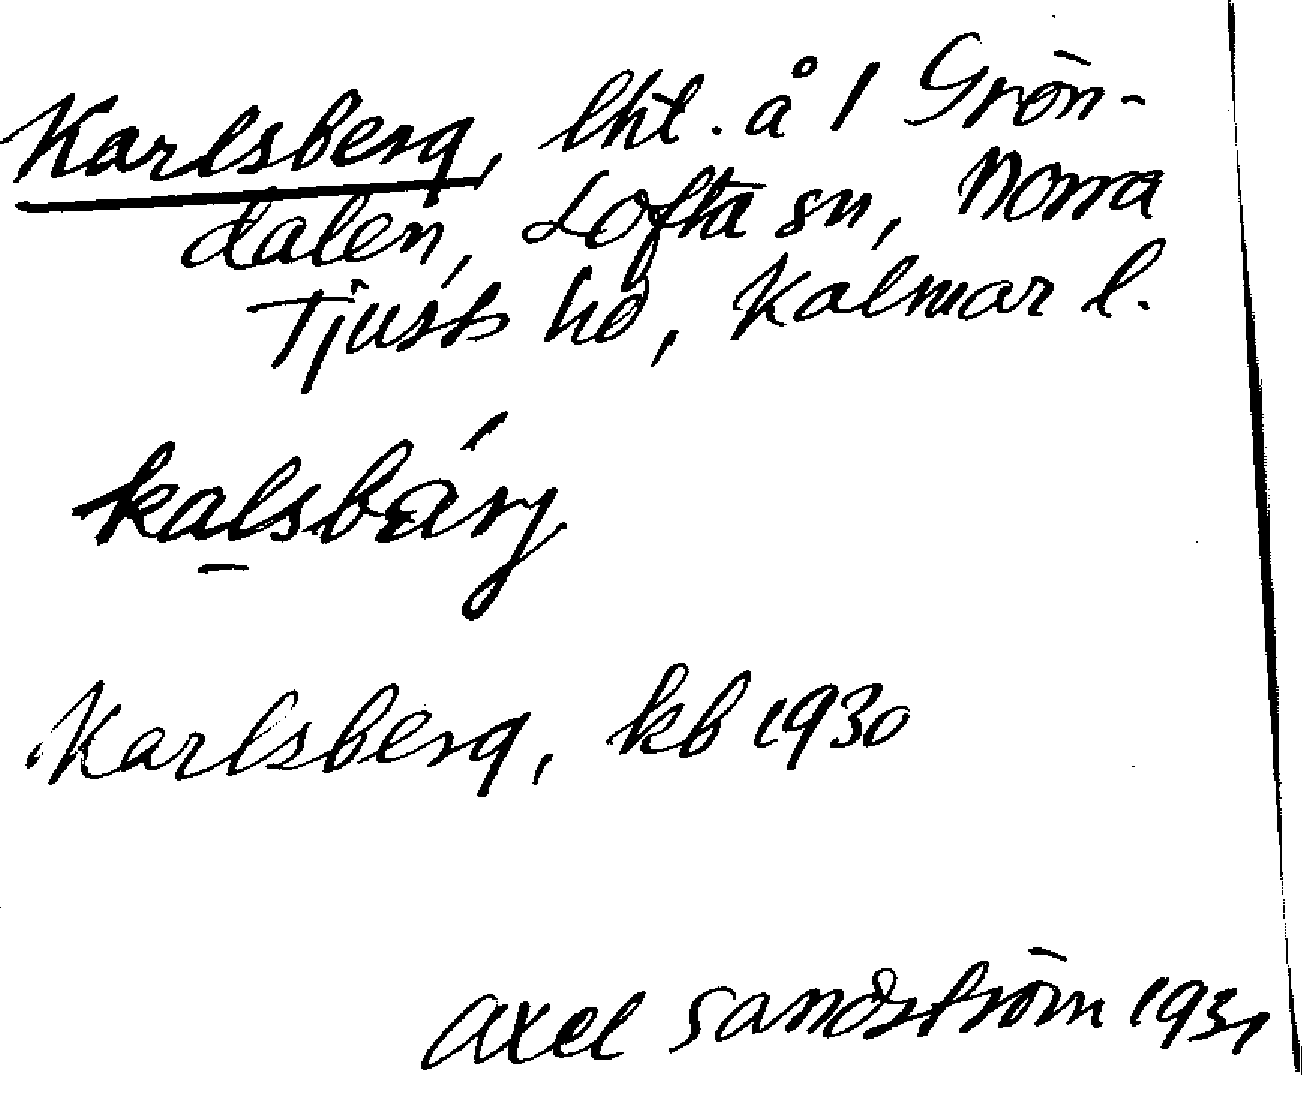 Karlsberg, lht. å 1 Grön-
dalen, Lofta sn, Norra
Tjusts hd, Kalmar l.
kalsbárj
Karlsberg, kb 1930
Axel Sandström 1931